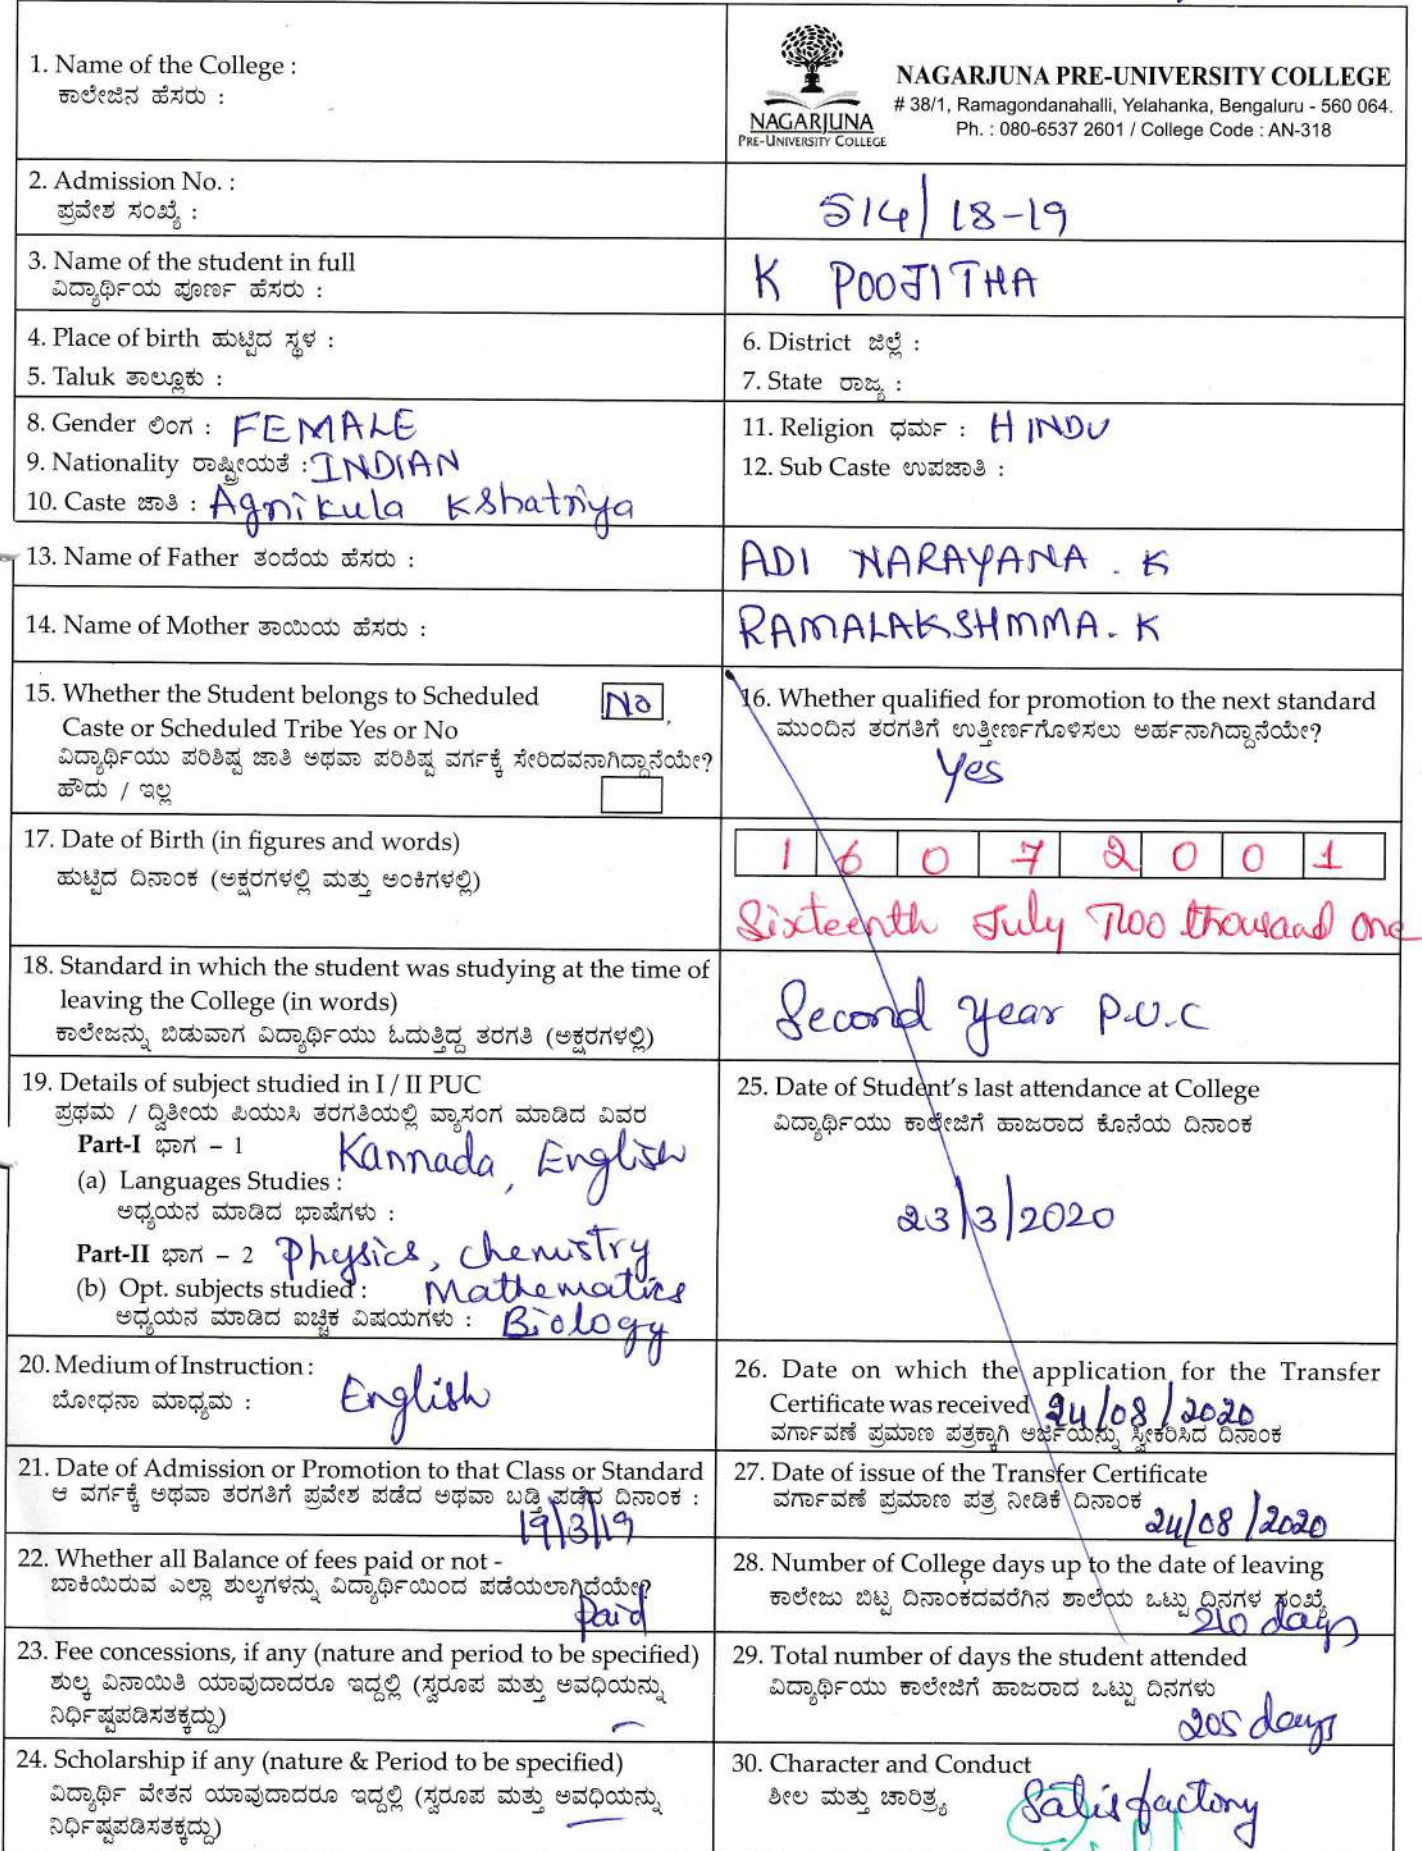 1. Name of the College :
ಕಾಲೇಜಿನ ಹೆಸರು :
NAGARJUNA
PRE-UNIVERSITY COLLEGE
NAGARJUNA PRE-UNIVERSITY COLLEGE
# 38/1, Ramagondanahalli, Yelahanka, Bengaluru - 560 064.
Ph. : 080-6537 2601 / College Code : AN-318
2. Admission No. :
ಪ್ರವೇಶ ಸಂಖ್ಯೆ :
514/18-19
3. Name of the student in full
ವಿದ್ಯಾರ್ಥಿಯ ಪೂರ್ಣ ಹೆಸರು :
K POOJITHA
4. Place of birth ಹುಟ್ಟಿದ ಸ್ಥಳ :
5. Taluk ತಾಲ್ಲೂಕು :
6. District ಜಿಲ್ಲೆ :
7. State ರಾಜ್ಯ :
8. Gender ಲಿಂಗ : FEMALE
9. Nationality ರಾಷ್ಟ್ರೀಯತೆ : INDIAN
10. Caste ಜಾತಿ : Agnikula Kshatriya
11. Religion ಧರ್ಮ : HINDU
12. Sub Caste ಉಪಜಾತಿ :
13. Name of Father ತಂದೆಯ ಹೆಸರು :
ADI NARAYANA . K
14. Name of Mother ತಾಯಿಯ ಹೆಸರು :
RAMALAKSHMMA. K
15. Whether the Student belongs to Scheduled No
Caste or Scheduled Tribe Yes or No
ವಿದ್ಯಾರ್ಥಿಯು ಪರಿಶಿಷ್ಟ ಜಾತಿ ಅಥವಾ ಪರಿಶಿಷ್ಟ ವರ್ಗಕ್ಕೆ ಸೇರಿದವನಾಗಿದ್ದಾನೆಯೇ?
ಹೌದು / ಇಲ್ಲ
16. Whether qualified for promotion to the next standard
ಮುಂದಿನ ತರಗತಿಗೆ ಉತ್ತೀರ್ಣಗೊಳಿಸಲು ಅರ್ಹನಾಗಿದ್ದಾನೆಯೇ?
Yes
17. Date of Birth (in figures and words)
ಹುಟ್ಟಿದ ದಿನಾಂಕ (ಅಕ್ಷರಗಳಲ್ಲಿ ಮತ್ತು ಅಂಕಿಗಳಲ್ಲಿ)
1 6 0 7 2 0 0 1
Sixteenth July Two thousand one
18. Standard in which the student was studying at the time of
leaving the College (in words)
ಕಾಲೇಜನ್ನು ಬಿಡುವಾಗ ವಿದ್ಯಾರ್ಥಿಯು ಓದುತ್ತಿದ್ದ ತರಗತಿ (ಅಕ್ಷರಗಳಲ್ಲಿ)
Second year P.U.C
19. Details of subject studied in I / II PUC
ಪ್ರಥಮ / ದ್ವಿತೀಯ ಪಿಯುಸಿ ತರಗತಿಯಲ್ಲಿ ವ್ಯಾಸಂಗ ಮಾಡಿದ ವಿವರ
Part-I ಭಾಗ – 1 Kannada, English
(a) Languages Studies :
ಅಧ್ಯಯನ ಮಾಡಿದ ಭಾಷೆಗಳು :
Part-II ಭಾಗ – 2 Physics, chemistry
(b) Opt. subjects studied : Mathematics
ಅಧ್ಯಯನ ಮಾಡಿದ ಐಚ್ಚಿಕ ವಿಷಯಗಳು : Biology
25. Date of Student's last attendance at College
ವಿದ್ಯಾರ್ಥಿಯು ಕಾಲೇಜಿಗೆ ಹಾಜರಾದ ಕೊನೆಯ ದಿನಾಂಕ
23/3/2020
20. Medium of Instruction :
ಬೋಧನಾ ಮಾಧ್ಯಮ :
English
26. Date on which the application for the Transfer
Certificate was received 24/08/2020
ವರ್ಗಾವಣೆ ಪ್ರಮಾಣ ಪತ್ರಕ್ಕಾಗಿ ಅರ್ಜಿಯನ್ನು ಸ್ವೀಕರಿಸಿದ ದಿನಾಂಕ
21. Date of Admission or Promotion to that Class or Standard
ಆ ವರ್ಗಕ್ಕೆ ಅಥವಾ ತರಗತಿಗೆ ಪ್ರವೇಶ ಪಡೆದ ಅಥವಾ ಬಡ್ತಿ ಪಡೆದ ದಿನಾಂಕ :
19/3/19
27. Date of issue of the Transfer Certificate
ವರ್ಗಾವಣೆ ಪ್ರಮಾಣ ಪತ್ರ ನೀಡಿಕೆ ದಿನಾಂಕ
24/08/2020
22. Whether all Balance of fees paid or not -
ಬಾಕಿಯಿರುವ ಎಲ್ಲಾ ಶುಲ್ಕಗಳನ್ನು ವಿದ್ಯಾರ್ಥಿಯಿಂದ ಪಡೆಯಲಾಗಿದೆಯೇ?
paid
28. Number of College days up to the date of leaving
ಕಾಲೇಜು ಬಿಟ್ಟ ದಿನಾಂಕದವರೆಗಿನ ಶಾಲೆಯ ಒಟ್ಟು ದಿನಗಳ ಸಂಖ್ಯೆ
210 days
23. Fee concessions, if any (nature and period to be specified)
ಶುಲ್ಕ ವಿನಾಯಿತಿ ಯಾವುದಾದರೂ ಇದ್ದಲ್ಲಿ (ಸ್ವರೂಪ ಮತ್ತು ಅವಧಿಯನ್ನು
ನಿರ್ಧಿಷ್ಟಪಡಿಸತಕ್ಕದ್ದು)
29. Total number of days the student attended
ವಿದ್ಯಾರ್ಥಿಯು ಕಾಲೇಜಿಗೆ ಹಾಜರಾದ ಒಟ್ಟು ದಿನಗಳು
205 days
24. Scholarship if any (nature & Period to be specified)
ವಿದ್ಯಾರ್ಥಿ ವೇತನ ಯಾವುದಾದರೂ ಇದ್ದಲ್ಲಿ (ಸ್ವರೂಪ ಮತ್ತು ಅವಧಿಯನ್ನು
ನಿರ್ಧಿಷ್ಟಪಡಿಸತಕ್ಕದ್ದು)
30. Character and Conduct
ಶೀಲ ಮತ್ತು ಚಾರಿತ್ರ್ಯ
Satisfactory